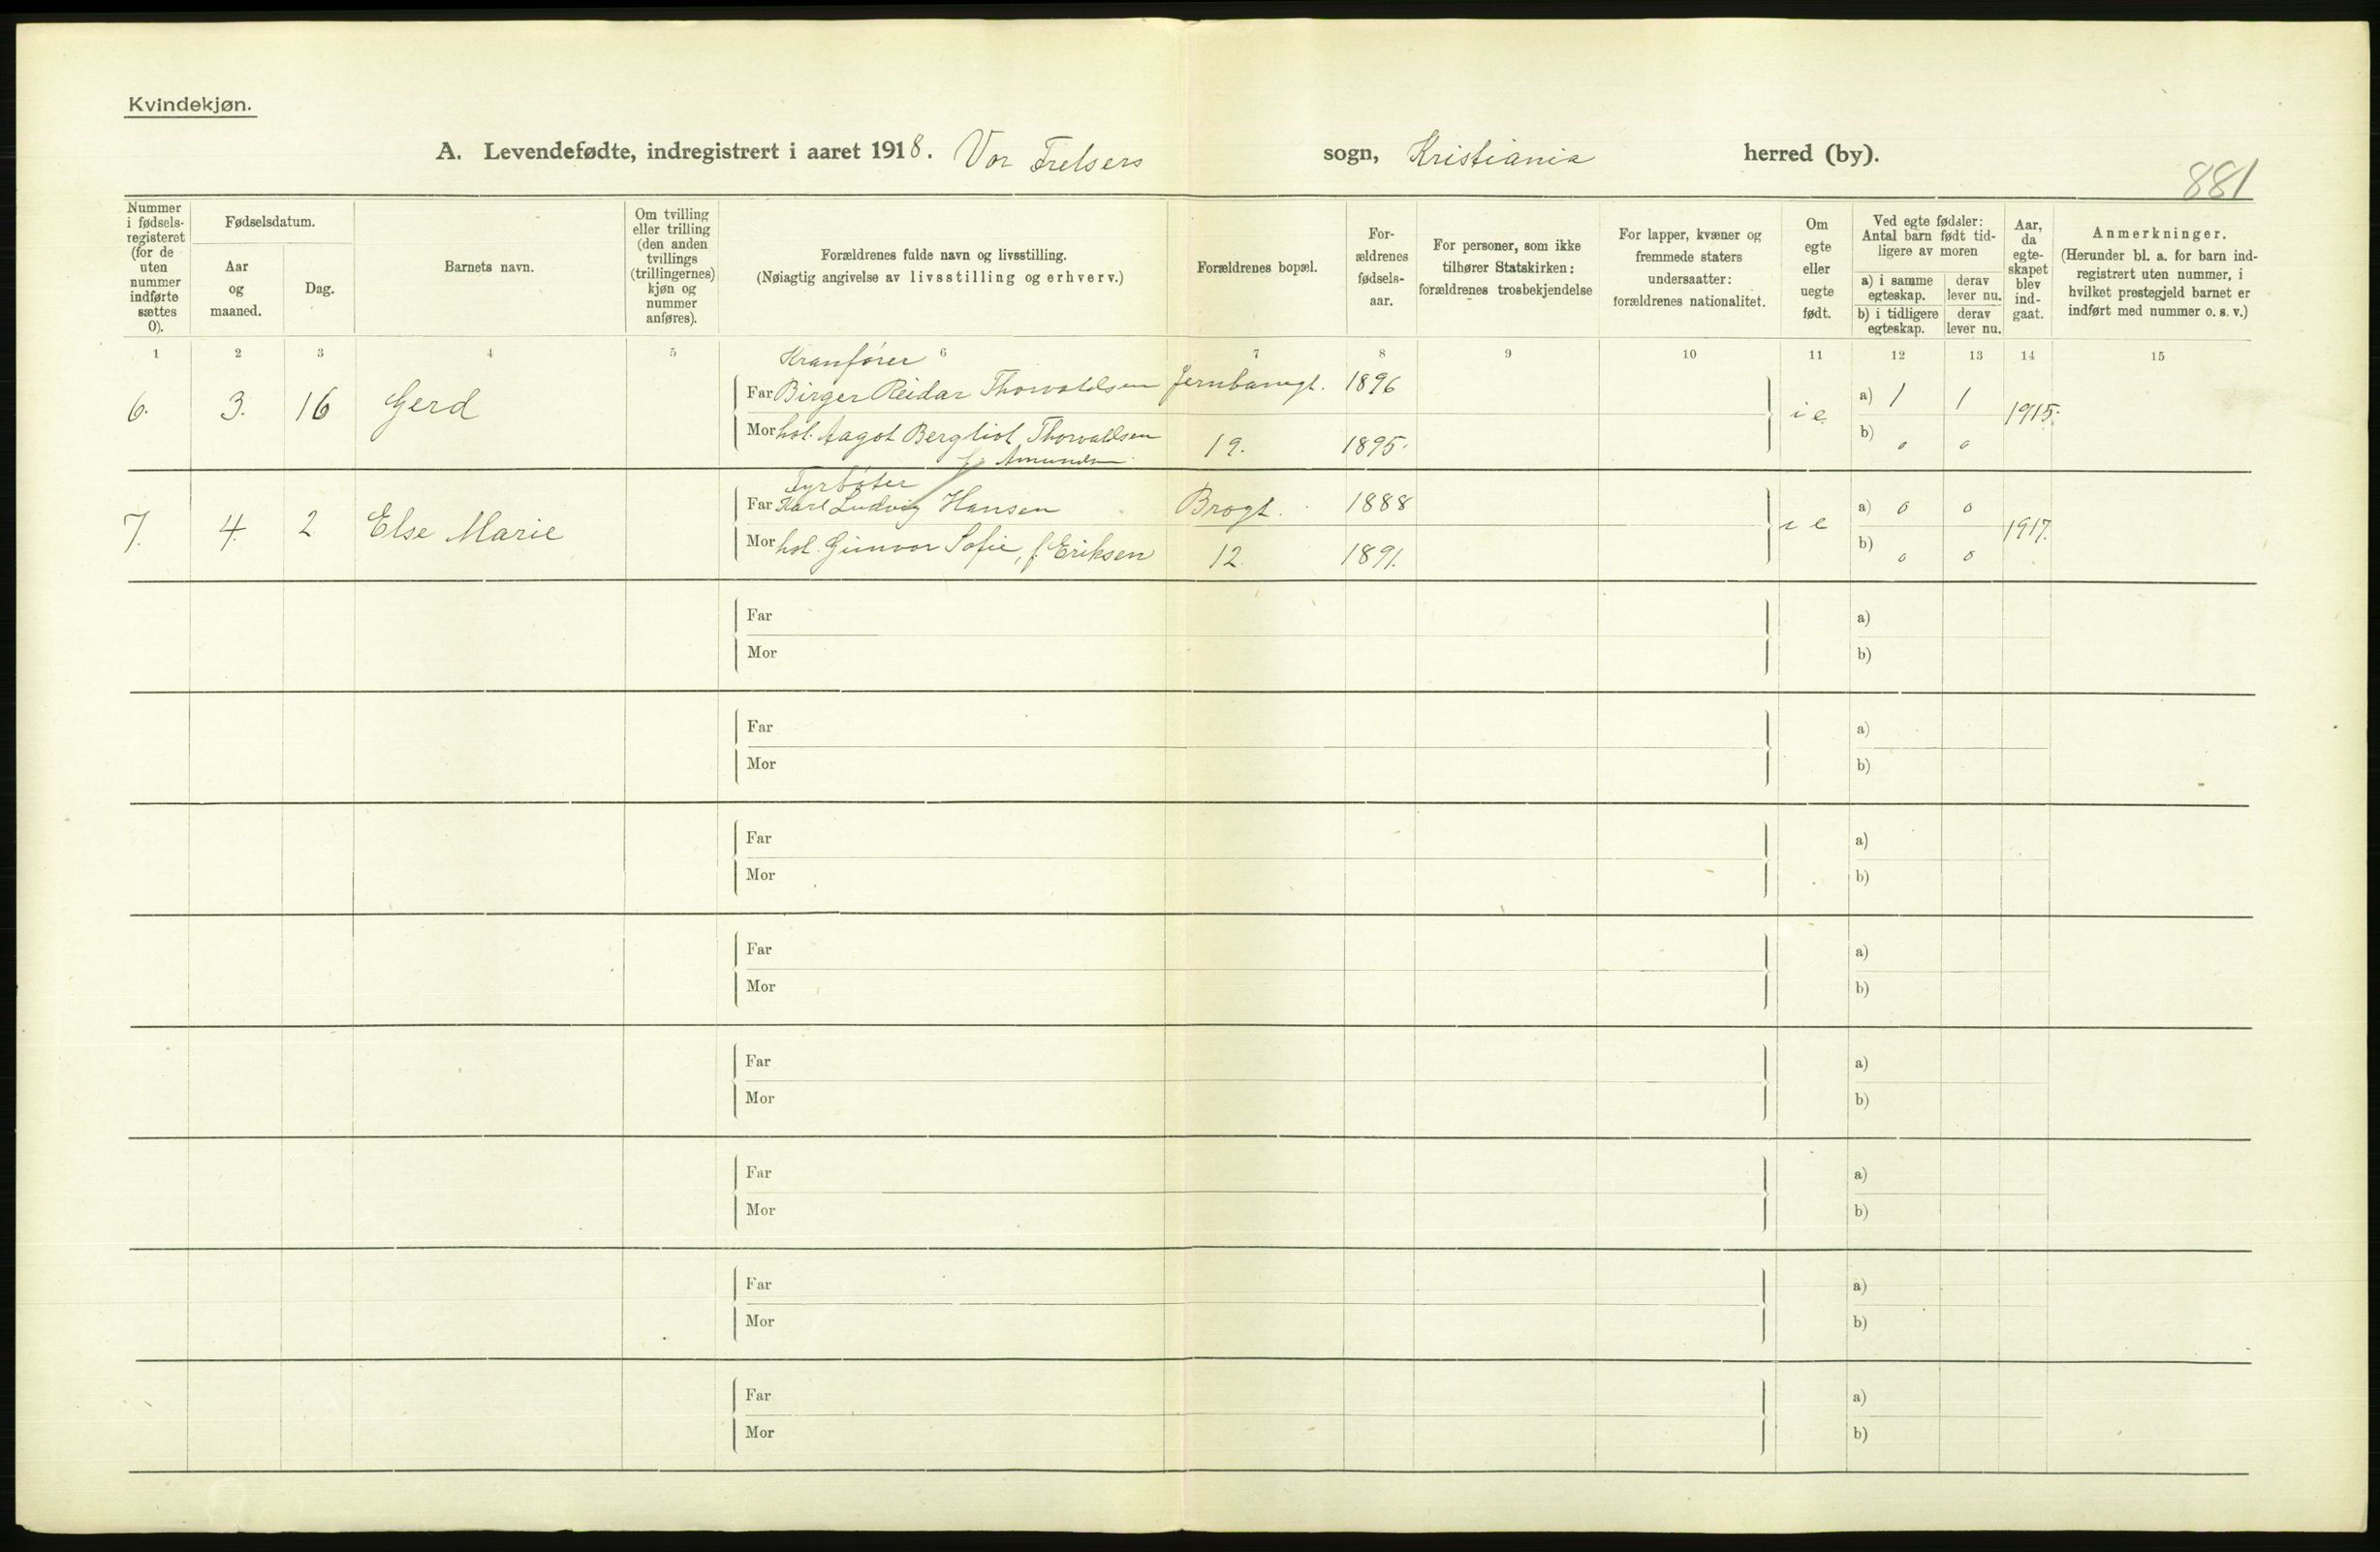 Kvindekjøn.
A. Levendefødte, indregistrert i aaret 1918. Vor Frelsers sogn, Kristiania herred (by).
881
Nummer i fødsels-registeret (for de uten nummer indførte sættes 0).
Fødselsdatum.
Aar og maaned.
Dag.
Barnets navn.
Om tvilling eller trilling (den anden tvillings (trillingernes) kjøn og nummer anføres).
Forældrenes fulde navn og livsstilling.
(Nøiagtig angivelse av livsstilling og erhverv.)
Forældrenes bopæl.
For-ældrenes fødsels-aar.
For personer, som ikke tilhører Statskirken: forældrenes trosbekjendelse
For lapper, kvæner og fremmede staters undersaatter: forældrenes nationalitet.
Om egte eller uegte født.
Ved egte fødsler: Antal barn født tid-ligere av moren
a) i samme egteskap.
derav lever nu.
b) i tidligere egteskap.
derav lever nu.
Aar, da egte-skapet blev ind-gaat.
Anmerkninger.
(Herunder bl. a. for barn ind-registrert uten nummer, i hvilket prestegjeld barnet er indført med nummer o. s. v.)
1 2 3 4 5 6 7 8 9 10 11 12 13 14 15
Kranfører
6. 3. 16 Gerd Far Birger Reidar Thorvaldsen Jernbanegt. 1896 i e a) 1 1 1915.
Mor hst. Aagot Bergliot Thorvaldsen 19. 1895. b) 0 0
f. Amundsen
Fyrbøter
7. 4. 2 Else Marie Far Karl Ludvig Hansen Brogt. 1888 i e a) 0 0 1917.
Mor hst. Gunvor Sofie, f. Eriksen 12 1891. b) 0 0
Far a)
Mor b)
Far a)
Mor b)
Far a)
Mor b)
Far a)
Mor b)
Far a)
Mor b)
Far a)
Mor b)
Far a)
Mor b)
Far a)
Mor b)